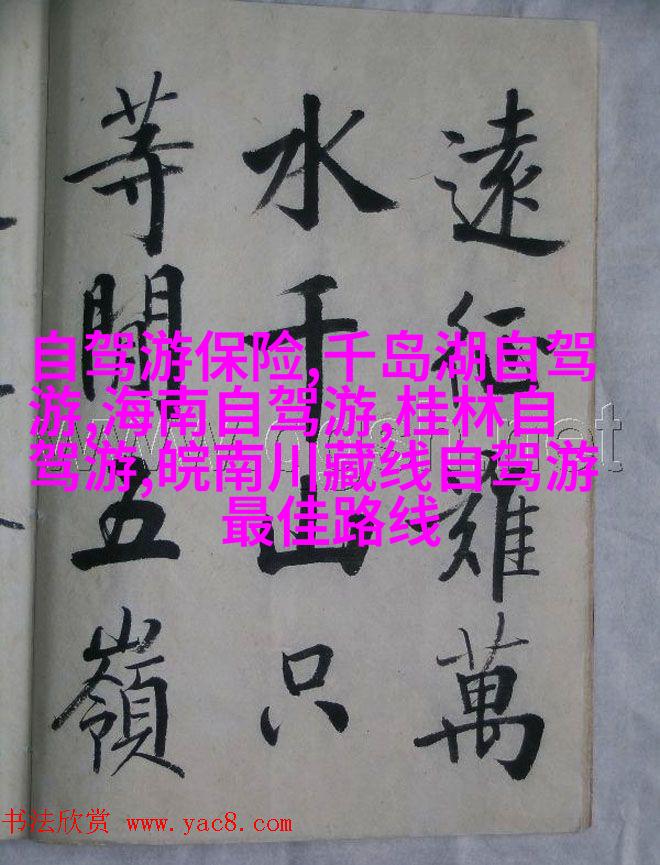 遠征難萬
水千山只
等閑五嶺
自驾游保险,千岛湖自驾
游,海南自驾游,桂林自
驾游,皖南川藏线自驾游
最佳路线
书法欣赏 www.yac8.com